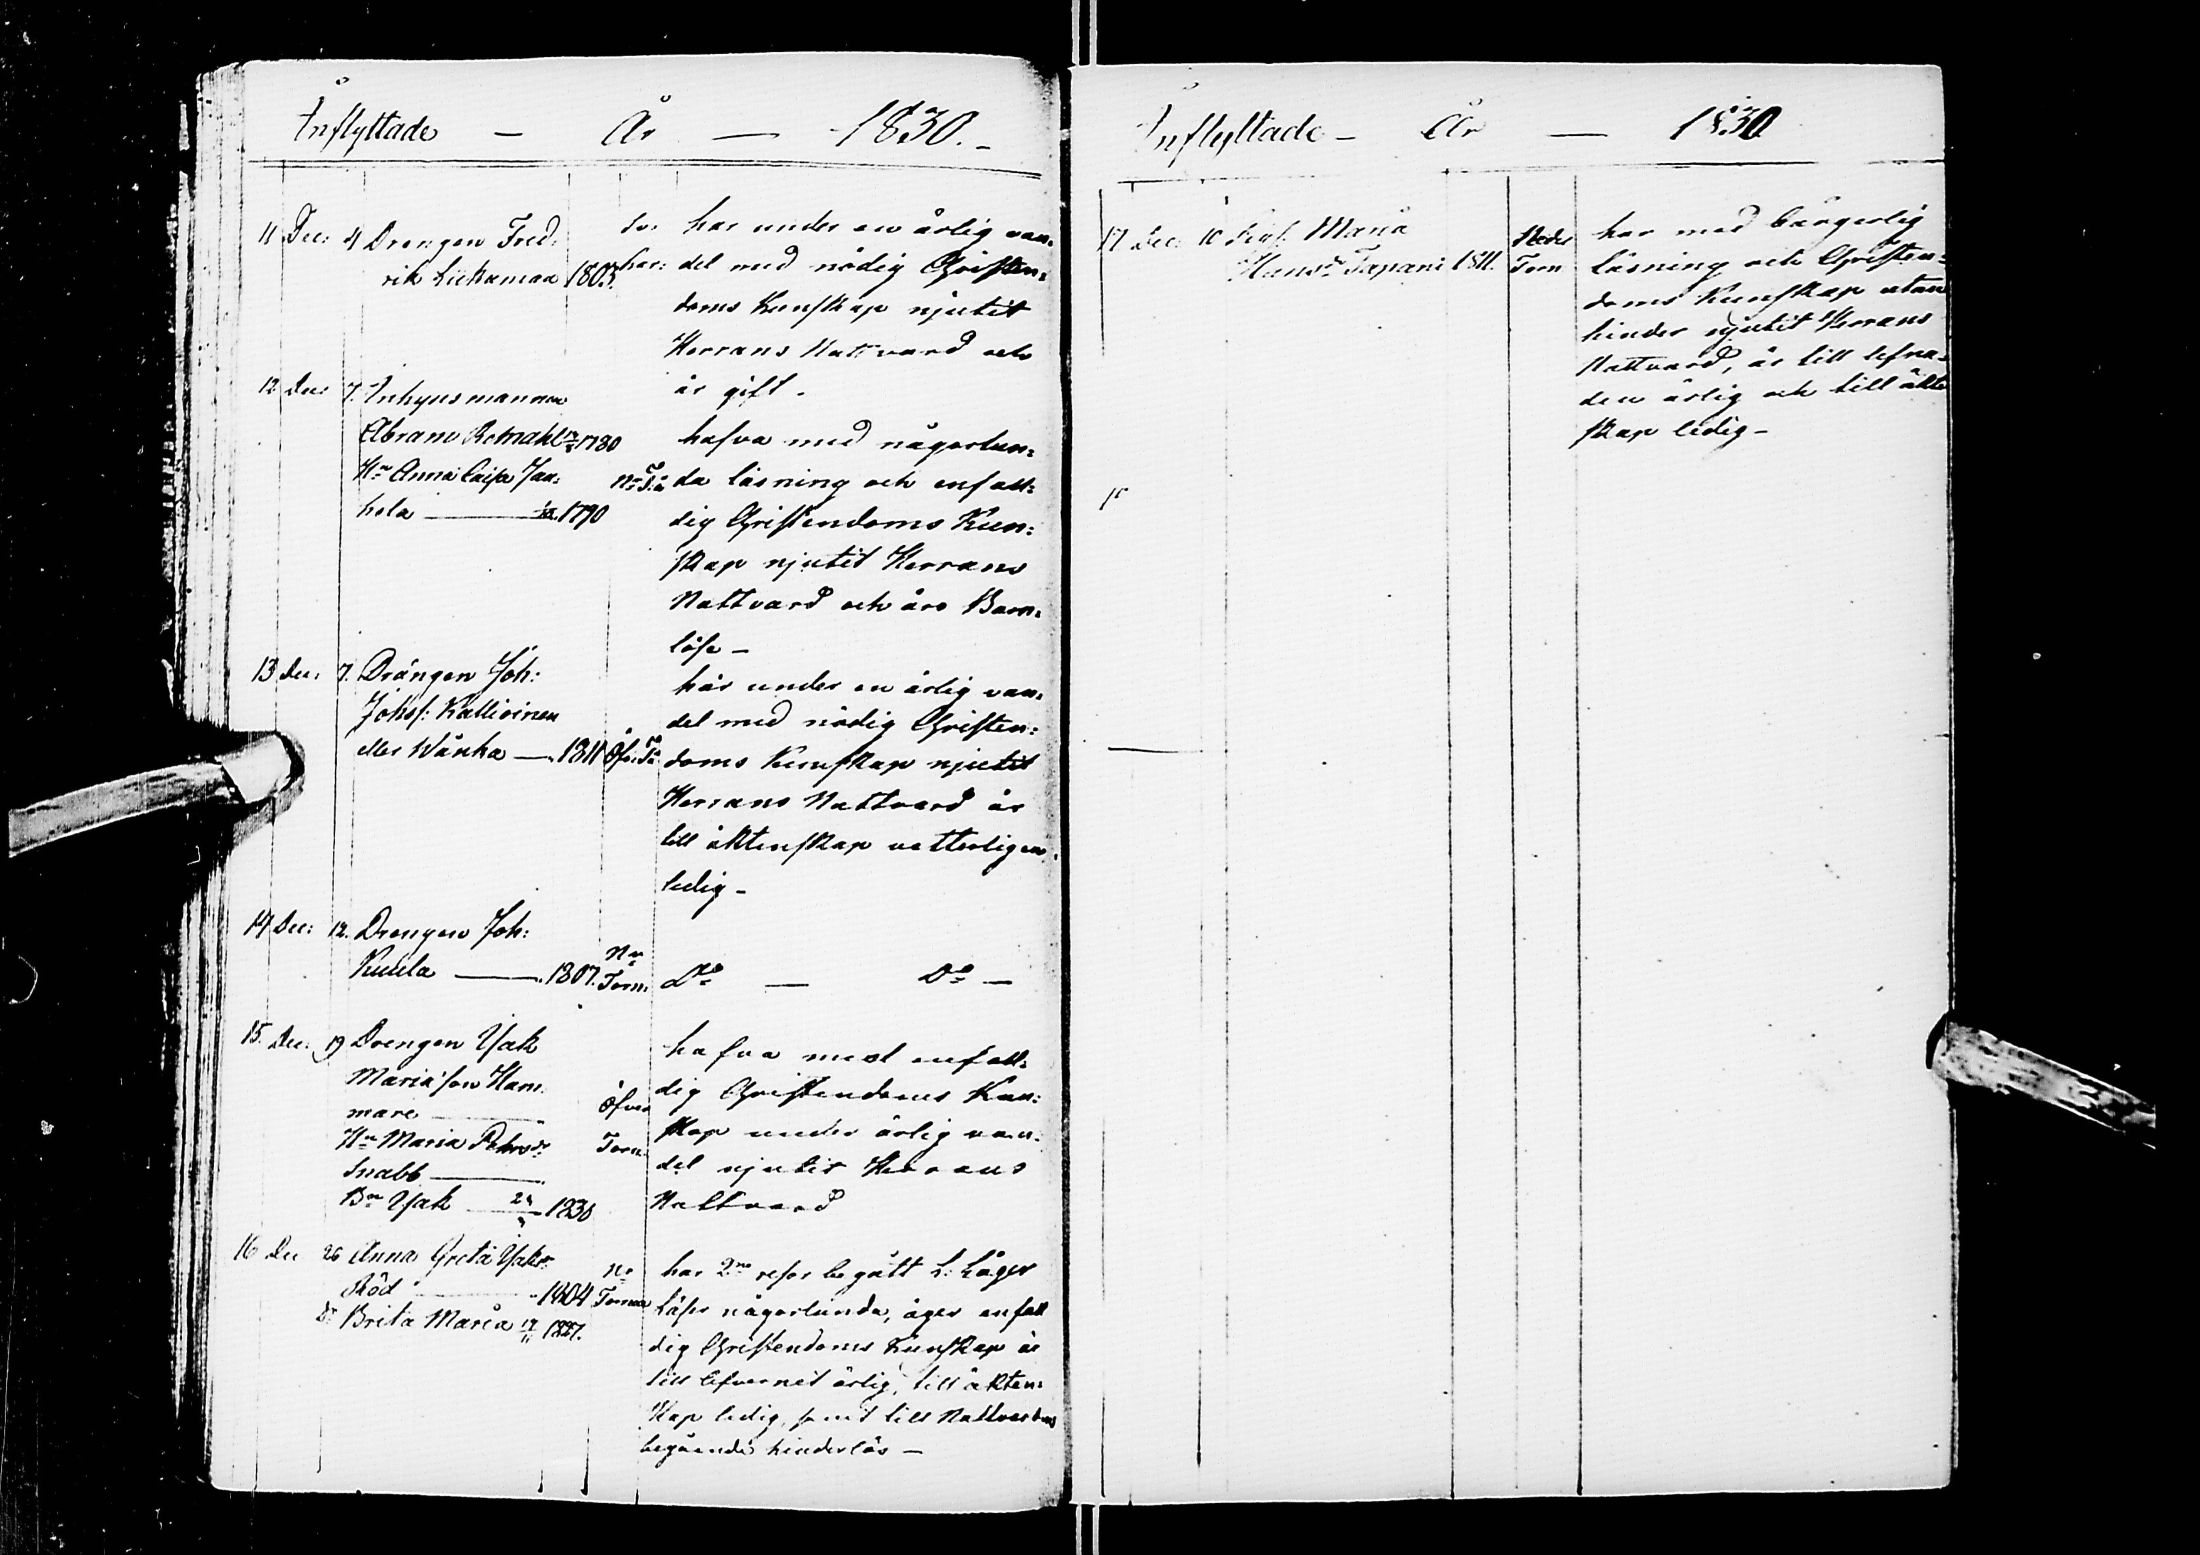 Inflyttade – År – 1830.
11 Dec: 4 Drengen Fred:
rik Liekamaa 1803.
har under en ärlig van:
del med nödig Christen:
doms Kunskap njutit
Herrans Nattvard och
är gift.
12 Dec: 7. Inhysmannen
Abram 1780
Hu Anna Caisa Jaa:
hola 1790
Nr Tå
hafva med någorlun:
da läsning och enfall:
dig Christendoms Kun:
skap njutit Herrans
Nattvard och äro Barn:
löse –
13 Dec: 7. Drängen Joh:
Johsf: Kallioinen
eller Wänkä – 1811 Öfv: Tå
har under en ärlig van:
del med nödig Christen:
doms Kunskap njutit
Herrans Nattvard är
till äktenskap vetterligen
ledig –
14 Dec: 12. Drengen Joh:
Kuula – 1807. Nr Torn: Do – Do –
15. Dec: 19 Drengen Isak
Mariäson Ham:
mare
Hu Maria Pehrsdr
Snabb
Bn Isak 1830
Öfver
Torn:
hafva med enfall:
dig Christendoms Kun:
skap under ärlig van:
del njutit Herrans
Nattvard
16 Dec 26 Anna Greta Isaksr:
Röd 1804 Nr Tornea
Dr Brita Maria 1827.
har 2ne resor begått L: Läger
Läser någorlunda, äger enfall
dig Christendoms Kunskap är
till lefvernet ärlig, till äkten:
skap ledig, samt till Nattvardens
begående hinderlös –
Inflyttade – År – 1830
17 Dec: 10 Pig: Maria
Hansdr Tapani 1811. Neder
Torn
har med bårgerlig
läsning och Christen:
doms Kunskap utan
hinder njutit Herrans
Nattvard, är till lefna:
den ärlig och till äkten
skap ledig –